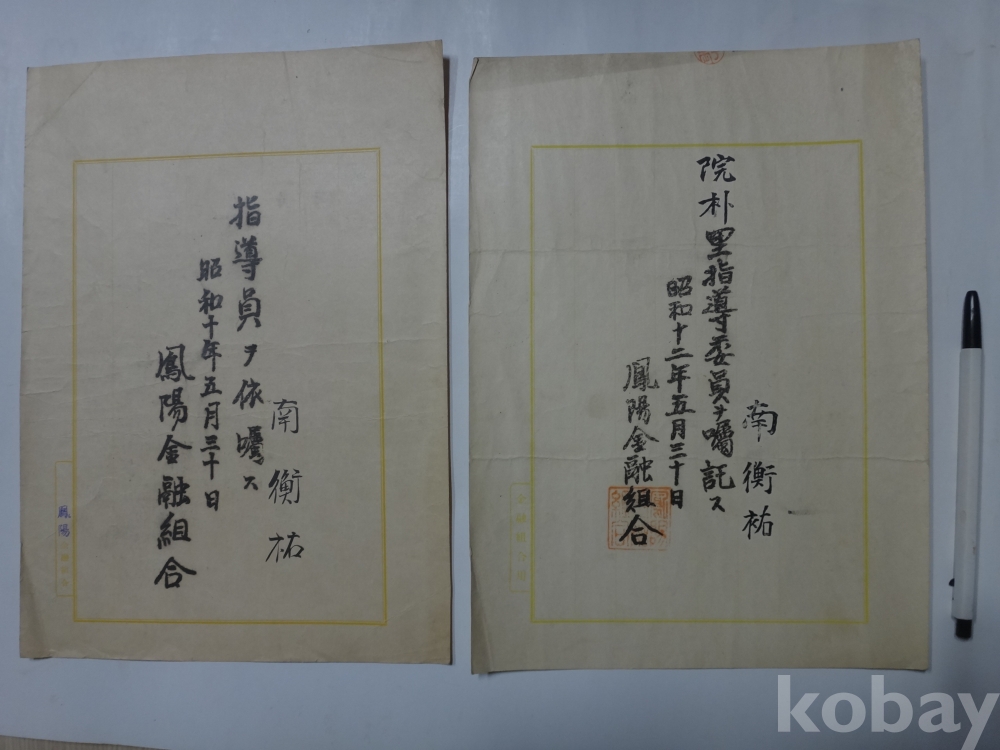 南衡祐
指導員ヲ依囑ス
昭和十年五月三十日
鳳陽金融組合
鳳陽
南衡祐
院朴里指導委員ヲ囑託ス
昭和十二年五月三十日
鳳陽金融組合
kobay